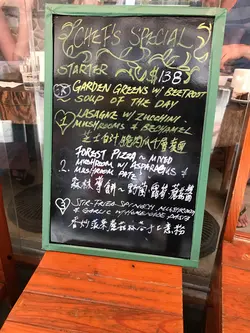 CHEF'S SPECIAL
STARTER $138
GARDEN GREENS W/ BEETROOT
SOUP OF THE DAY
LASAGNE W/ ZUCCHINI
MUSHROOMS & BECHAMEL
芝士白汁
千層麵
FOREST PIZZA ~ MIXED
MUSHROOM W/ ASPARAGUS &
2. MUSHROOM PATE
薄餅~野菌露筍蘑菇醬
STIR-FRIED SPINACH MUSHROOM
& GARLIC W/ HOMEMADE PASTA
香炒菠菜蘑菇